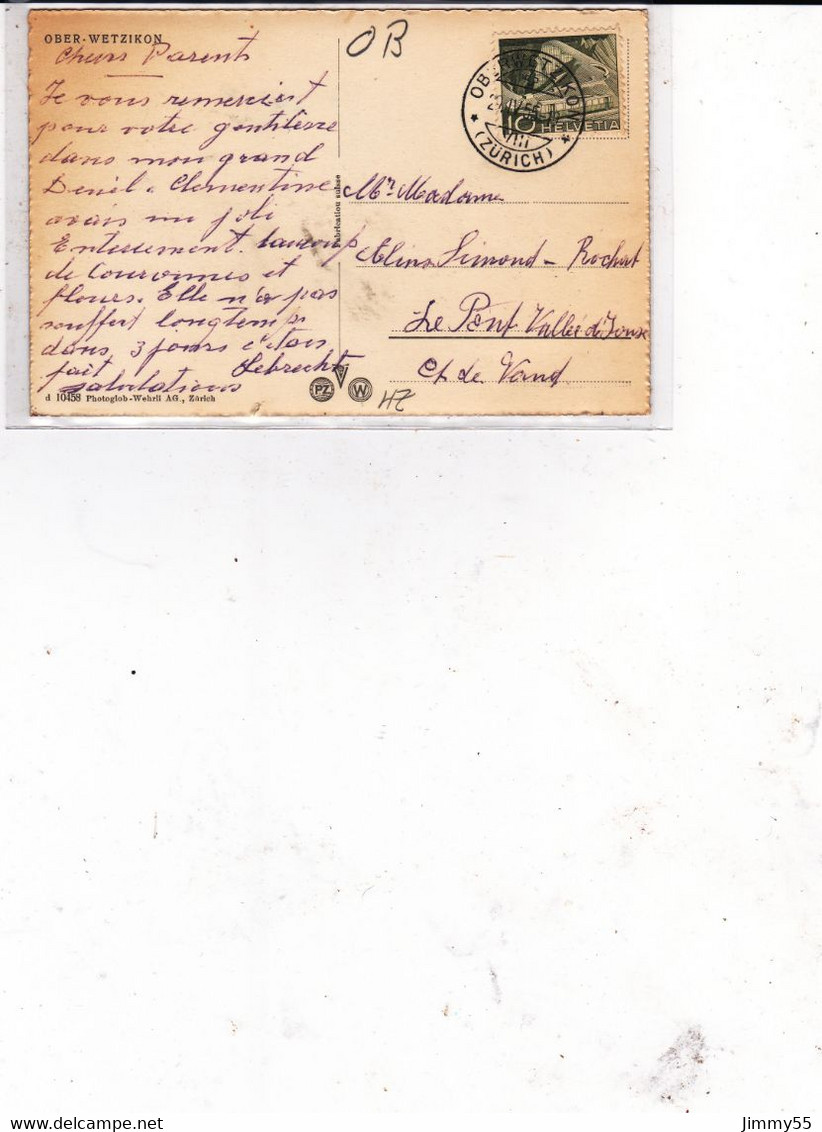 OBER-WETZIKON
Chers Parents
Je vous remerciest
pour votre gentilesse
dans mon grand
Deuil. Clementine
avais un joli
Enterrement. baucoup
de Couronnes et
fleurs. Elle n'a pas
souffert longtemps
dans 3 jours c'etais
fait Lebrecht
salutations
d 10458 Photoglob-Wehrli AG., Zürich
Fabrication suisse
PZ W
HZ
OB
OBERWETZIKON
(ZÜRICH)
VIII
10 HELVETIA
Mr. Madame
Simond - Rochat
Le Pont Vallée d. Joux
Ct. de Vaud
Jimmy55